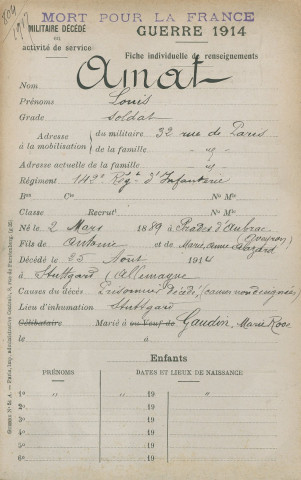 MORT POUR LA FRANCE
MILITAIRE DÉCÉDÉ
en
activité de service
GUERRE 1914
Fiche individuelle de renseignements
Nom Amat
Prénoms Louis
Grade Soldat
Adresse à la mobilisation
du militaire 32 rue de Paris
de la famille "
Adresse actuelle de la famille "
Régiment 142e Rég.t d'Infanterie
Bon Cie No Mle
Classe Recrut. No Mle
Né le 2 Mars 1889 à Prades d'Aubrac
(Aveyron)
Fils de Antoine et de Marie, Anne
Décédé le 25 Août 1914
à Stuttgard (Allemagne)
Causes du décès Prisonnier décédé (causes non désignées)
Lieu d'inhumation Stuttgard
Célibataire Marié à ou Veuf de Gaudin, Marie Rose
le à
Enfants
PRÉNOMS DATES ET LIEUX DE NAISSANCE
1o " " 19 "
2o 19
3o 19
4o 19
5o 19
6o 19